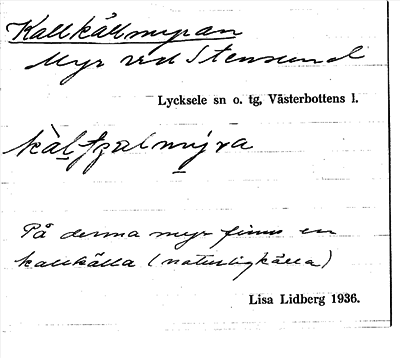 Kallkällmyran
Myr vid Stensund
Lycksele sn o. tg, Västerbottens l.
På denna myr finns en
kallkälla (naturligkälla)
Lisa Lidberg 1936.